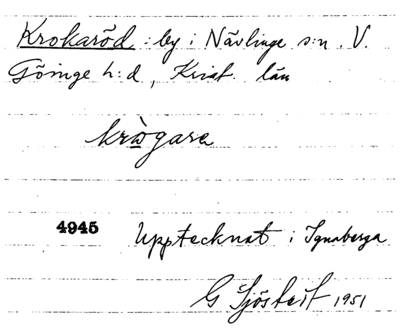 Krokaröd : by i Nävlinge s:n. V.
Göinge h:d, Krist. län
krògara
4945 Upptecknat i Ignaberga
G Sjöstedt 1951